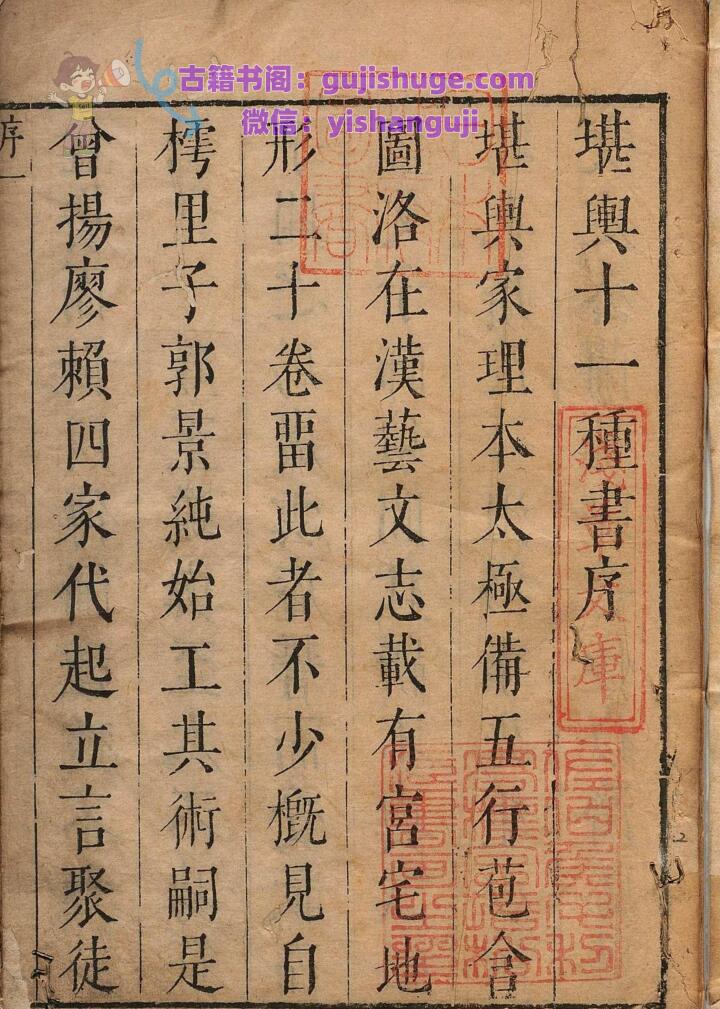 古籍书阁：gujishuge.com
微信：yishanguji
堪輿十一種書序
堪輿家理本太極備五行苞含
圖洛在漢藝文志載有宮宅地
形二十卷畱此者不少概見自
樗里子郭景純始工其術嗣是
曾揚廖賴四家代起立言聚徒
序一
庫